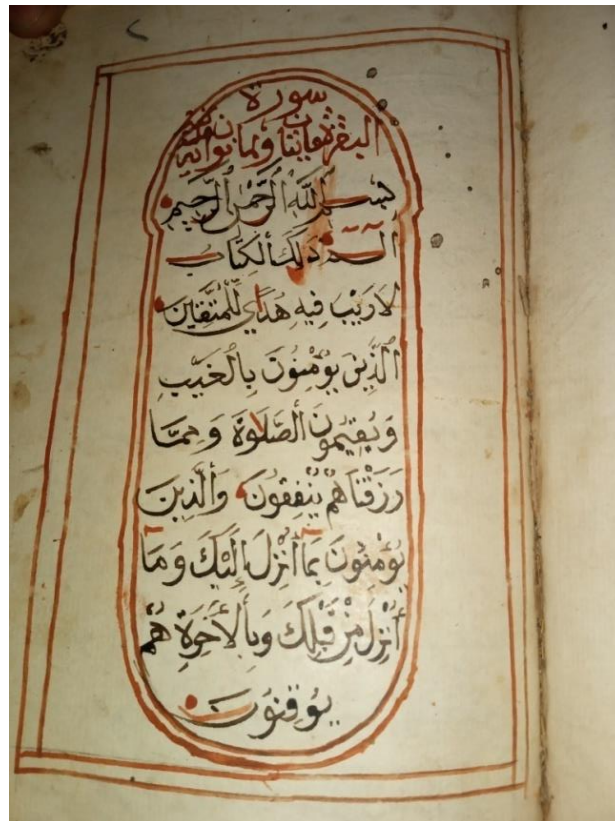 سورة
البقرة مايتان وثمانون اية
بسم الله الرحمن الرحيم
الم ذلك ألكتاب
لا ريب فيه هدي للمتقين
الذين يؤمنون بالغيب
ويقيمون ألصلاوة ومما
رزقناهم ينفقون وألذين
يؤمنون بما أنزل إليك وما
أنزل من قبلك وبألأخرة هم
يوقنون